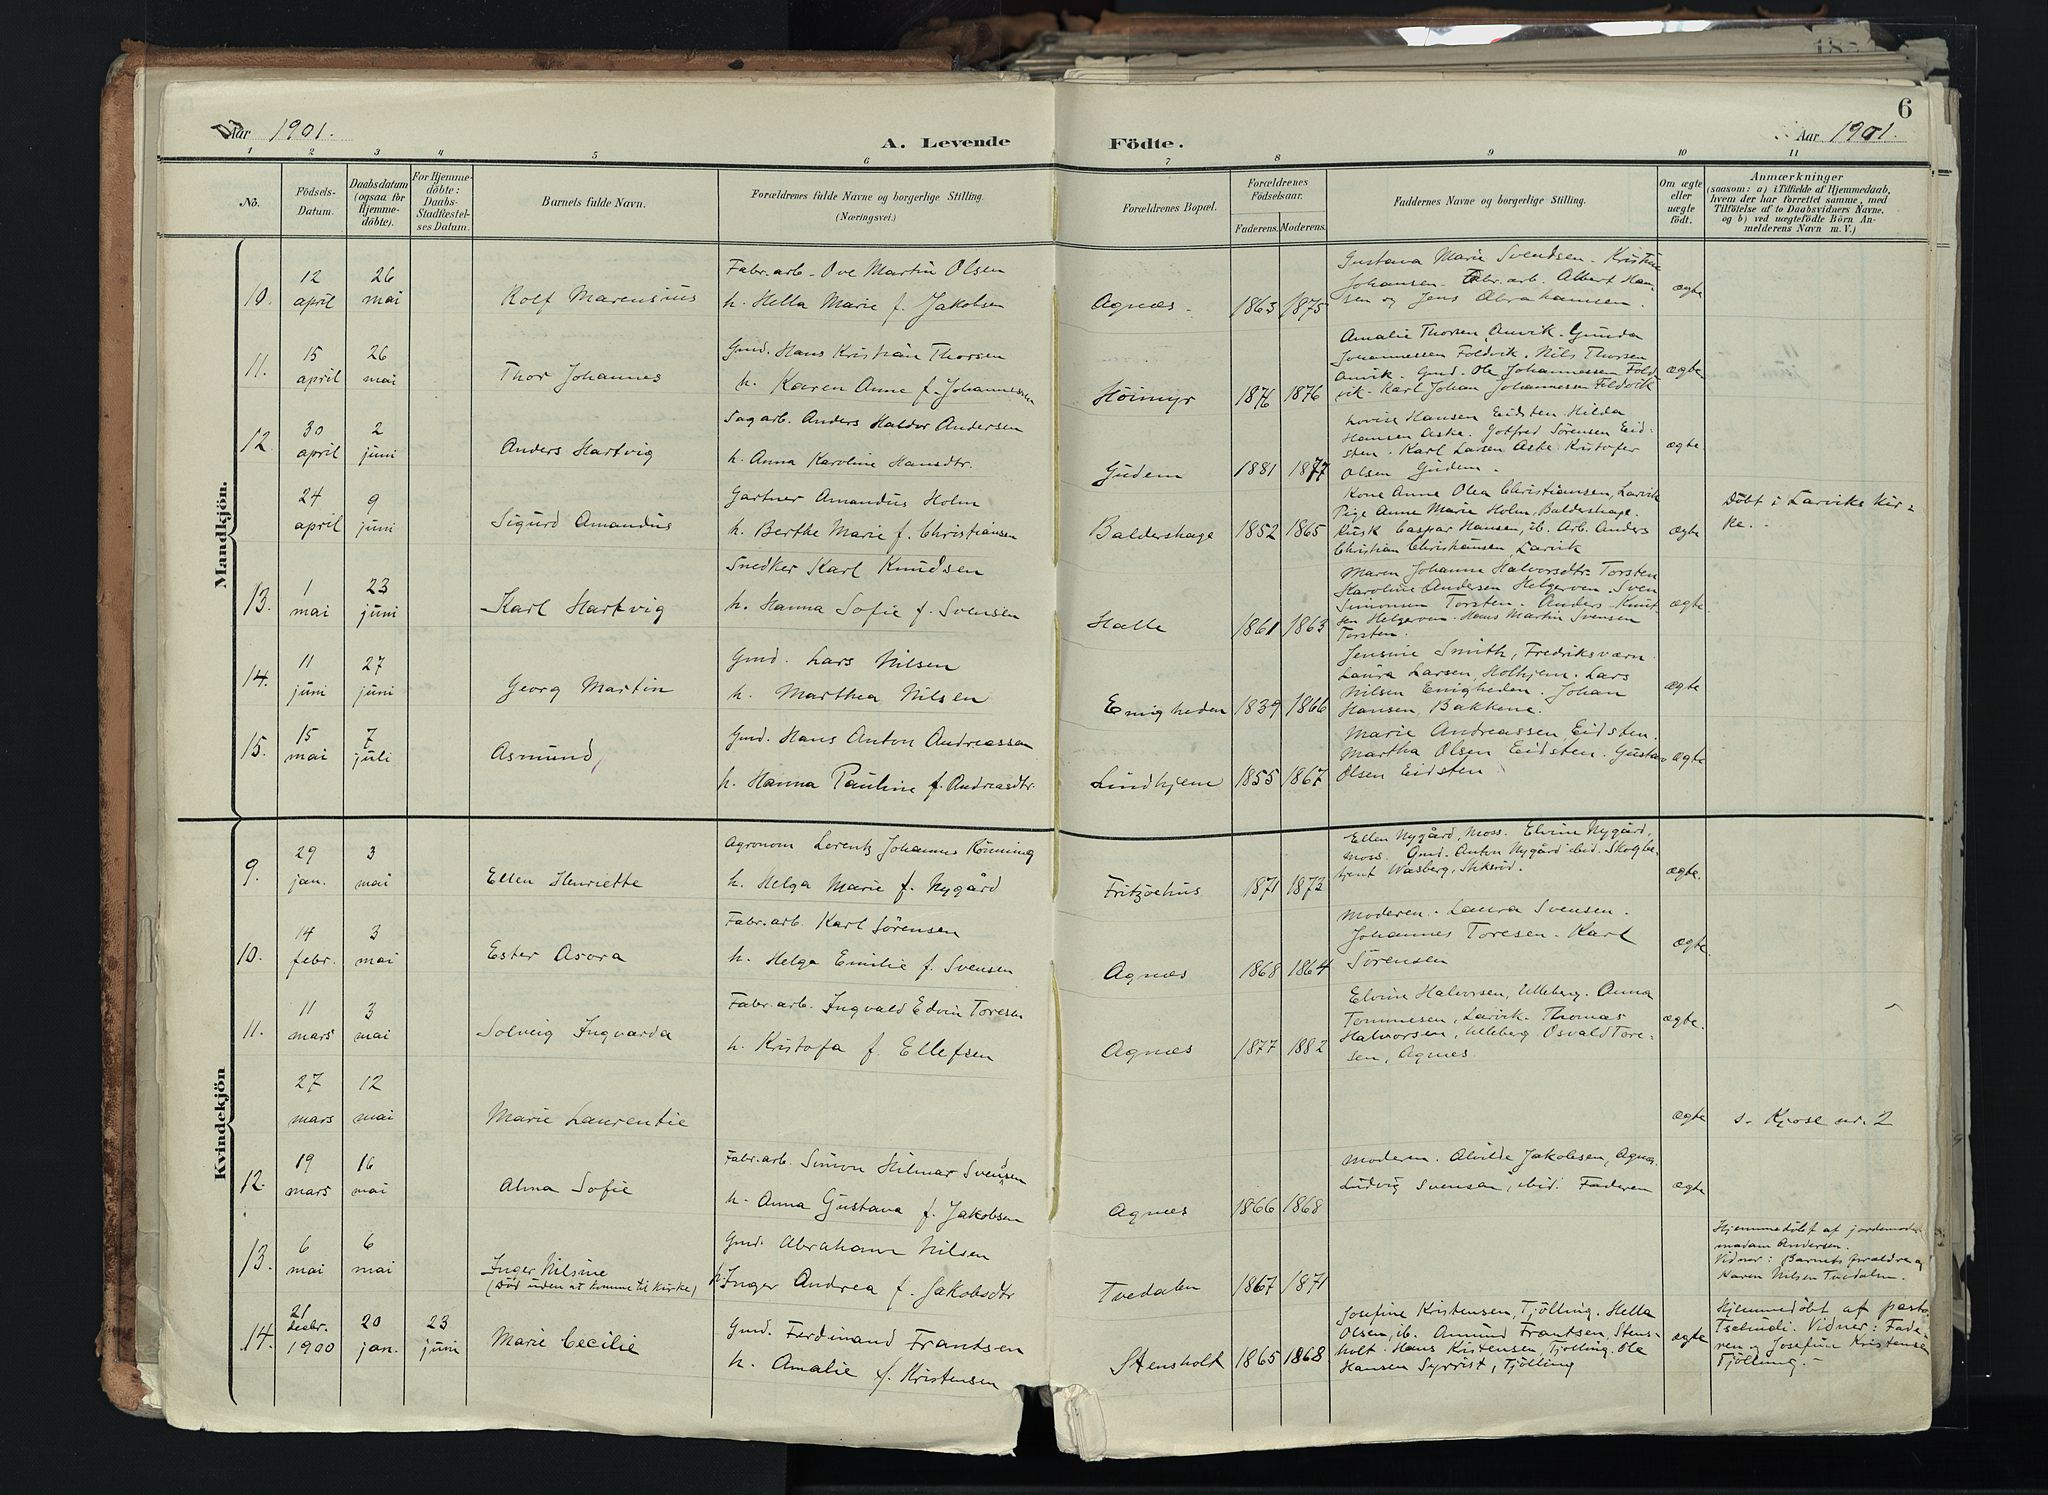 Aar 1901.
A. Levende
Födte.
Aar 1901.
6
1 2 3 4 5 6 7 8 9 10 11
No.
Födsels-Datum.
Daabsdatum (ogsaa for Hjemmedöbte).
For Hjemmedöbte: Daabs-Stadfæstelses Datum.
Barnets fulde Navn.
Forældrenes fulde Navne og borgerlige Stilling.
(Næringsvei.)
Forældrenes Bopæl.
Forældrenes Födselsaar.
Faderens. Moderens.
Faddernes Navne og borgerlige Stilling.
Om ægte eller uægte födt.
Anmærkninger
(saasom: a) i Tilfælde af Hjemmedaab,
hvem der har forrettet samme, med
Tilföielse af to Daabsvidners Navne,
og b) ved uægtefödte Börn An-
melderens Navn m. V.)
Mandkjön.
10. 12 april 26 mai Rolf Marensius
Fabr.arb. Ove Martin Olsen
h. Hella Marie f. Jakobsen
Agnæs. 1863 1875
Gustava Marie Svendsen. Kristine
Johansen. Fabr.arb. Albert Han-
sen og Jens Abrahamsen.
ægte
11. 15 april 26 mai Thor Johannes
Gmd. Hans Kristian Thorsen
h. Karen Anne f. Johannessen
Höimyr 1876 1876
Amalie Thorsen, Anvik. Gunda
Johannessen Foldvik. Nils Thorsen
Anvik. Gmd. Ole Johannessen Fold
vik. Karl Johan Johannessen Foldvik
ægte
12. 30 april 2 juni Anders Hartvig
Sagarb. Anders Haldor Andersen
h. Anna Karoline Hansdtr.
Gudem 1881 1877
Lovise Hansen Eidsten. Hilda
Hansen Aske. Gotfred Sörensen Eid-
sten. Karl Larsen Aske. Kristofer
Olsen Gudem.
ægte
24 april 9 juni Sigurd Amandus
Gartner Amandus Holm
h. Berthe Marie f. Christiansen
Baldershage 1852 1865
Kone Anne Olea Christiansen, Larvik
Pige Anne Marie Holm, Baldershage.
Kusk Caspar Hansen, ib. Arb. Anders
Christian Christiansen, Larvik
ægte
Döbt i Larviks Kir-
ke.
13. 1 mai 23 juni Karl Hartvig
Snedker Karl Knudsen
h. Hanna Sofie f. Svensen
Halle 1861 1863
Maren Johanne Halvorsdtr. Torsten
Karoline Andersen Helgerven. Sven
Simonsen Torsten. Anders Knut-
sen Helgerven. Hans Martin Svensen
Torsten.
ægte
14. 11 juni 27 juni Georg Martin
Gmd. Lars Nilsen
h. Marthea Nilsen
Enigheden 1839 1866
Jensine Smith, Fredriksværn.
Laura Larsen, Holhjem. Lars
Nilsen Enigheden. Johan
Hansen, Bakkene.
ægte
15. 15 mai 7 juli Asmund
Gmd. Hans Anton Andreassen
h. Hanna Pauline f. Andreasdtr.
Lindhjem 1855 1867
Marie Andreassen, Eidsten.
Martha Olsen Eidsten. Gustav
Olsen Eidsten
ægte
Kvindekjön
9. 29 jan. 3 mai Ellen Henriette
Agronom Lorentz Johannes Rönning
h. Helga Marie f. Nygård
Fritzöehus 1871 1873
Ellen Nygård, Moss. Elvine Nygård,
Moss. Gmd. Anton Nygård ibid. Skogbe-
tjent Wasberg,
ægte.
10. 14 febr. 3 mai Ester Asora
Fabr.arb. Karl Sörensen
h. Helga Emilie f. Svensen
Agnæs 1868 1864
Moderen. Laura Svensen.
Johannes Toresen. Karl
Sörensen
ægte
11. 11 mars 3 mai Solveig Ingvarda
Fabr.arb. Ingvald Edvin Toresen
h. Kristofa f. Ellefsen
Agnæs 1877 1882
Elvine Halvorsen, Ulleberg. Anna
Tommesen, Larvik. Thomas
Halvorsen, Ulleberg Osvald Tore-
sen, Agnæs.
ægte.
27 mars 12 mai Marie Laurentie
ægte
s. Kjose nr. 2
12. 19 mars 16 mai Alma Sofie
Fabr.arb. Simon Hilmar Svendsen
h. Anna Gustava f. Jakobsen
Agnæs 1866 1868
Moderen. Alvilde Jakobsen, Agnæs.
Ludvig Svensen, ibid. Faderen
ægte
13. 6 mai 6 mai Inger Nilsine
(Död uden at komme til Kirke)
Gmd. Abraham Nilsen
h. Inger Andrea f. Jakobsdtr
Tvedalen 1867 1871
Hjemmedöbt af jordemoder
madam Andersen.
Vidner: Barnets forældre og
Karen Nilsen Tvedalen.
14. 21 decbr. 1900 20 jan. 23 juni Marie Cecilie
Gmd. Ferdinand Frantsen
h. Amalie f. Kristensen
Stensholt 1865 1868
Josefine Kristensen, Tjölling. Hella
Olsen, ib. Amund Frantsen, Stens-
holt. Hans Kristensen, Tjölling. Ole
Hansen Syrrist, Tjölling
ægte
Hjemmedöbt af pastor
Tschudi. Vidner: Fade-
ren og Josefine Kristensen
Tjölling.